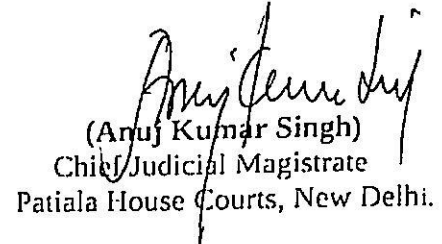 (Anuj Kumar Singh)
Chief Judicial Magistrate
Patiala House Courts, New Delhi.